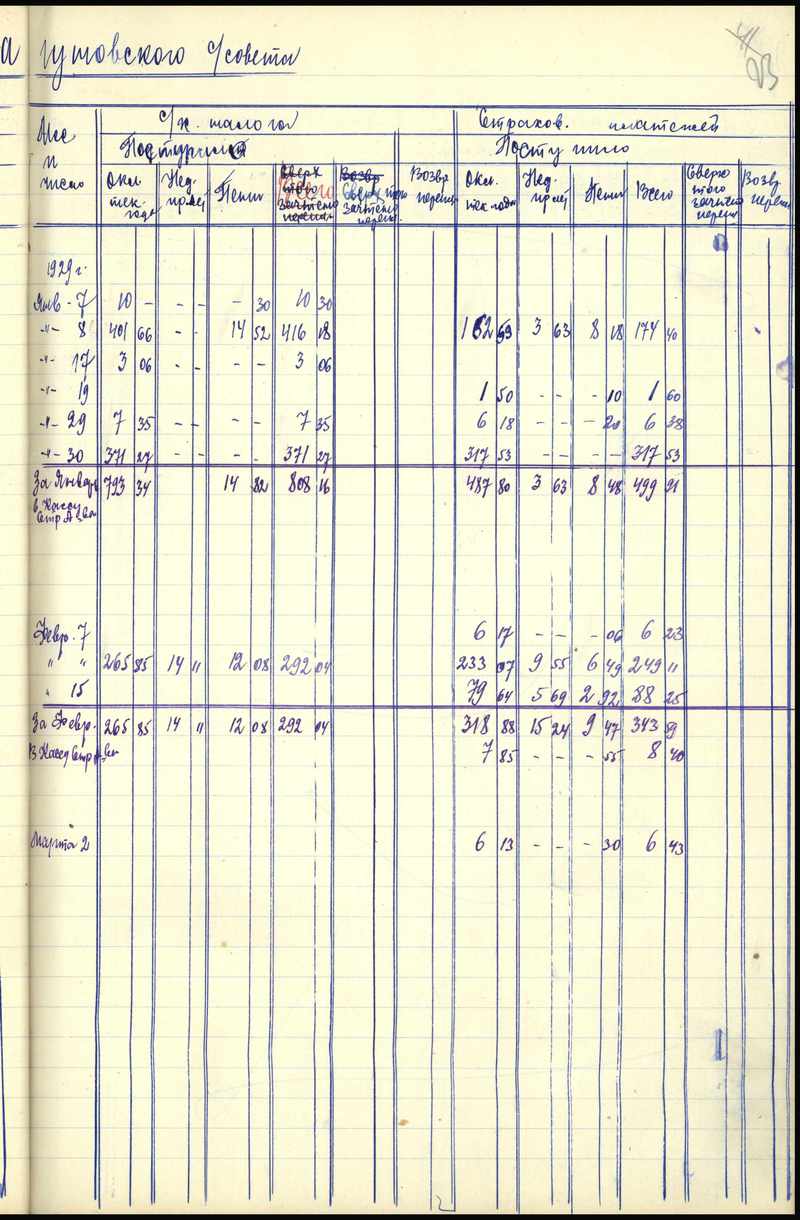 а гутовского с/совета
23
С/х. налога Страхов. платежей
Мес и число Поступило Поступило
Окл. тек. года Нед. пр. лет Пени Всего Сверх того зачтено переп. Возвр. переп. Окл. тек. года Нед. пр. лет Пени Всего Сверх того зачтено переп. Возвр. переп.
1929 г.
Янв - 7 10 - - - - 30 10 30
-"- 8 401 66 - - 14 52 416 18 162 59 3 63 8 18 174 40
-"- 17 3 06 - - - - 3 06
-"- 19 1 50 - - - 10 1 60
-"- 29 7 35 - - - - 7 35 6 18 - - - 20 6 38
-"- 30 371 27 - - - - 371 27 317 53 - - - - 317 53
За Январь 793 34 14 82 808 16 487 80 3 63 8 48 499 91
в Кассу
Февр. 7 6 17 - - - 06 6 23
" " 265 85 14 " 12 08 292 04 233 07 9 55 6 49 249 11
" 15 79 64 5 69 2 92 88 25
За Февр. 265 85 14 " 12 08 292 04 318 88 15 24 9 47 343 59
В Кассу 7 85 - - - 55 8 40
Марта 2 6 13 - - - 30 6 43